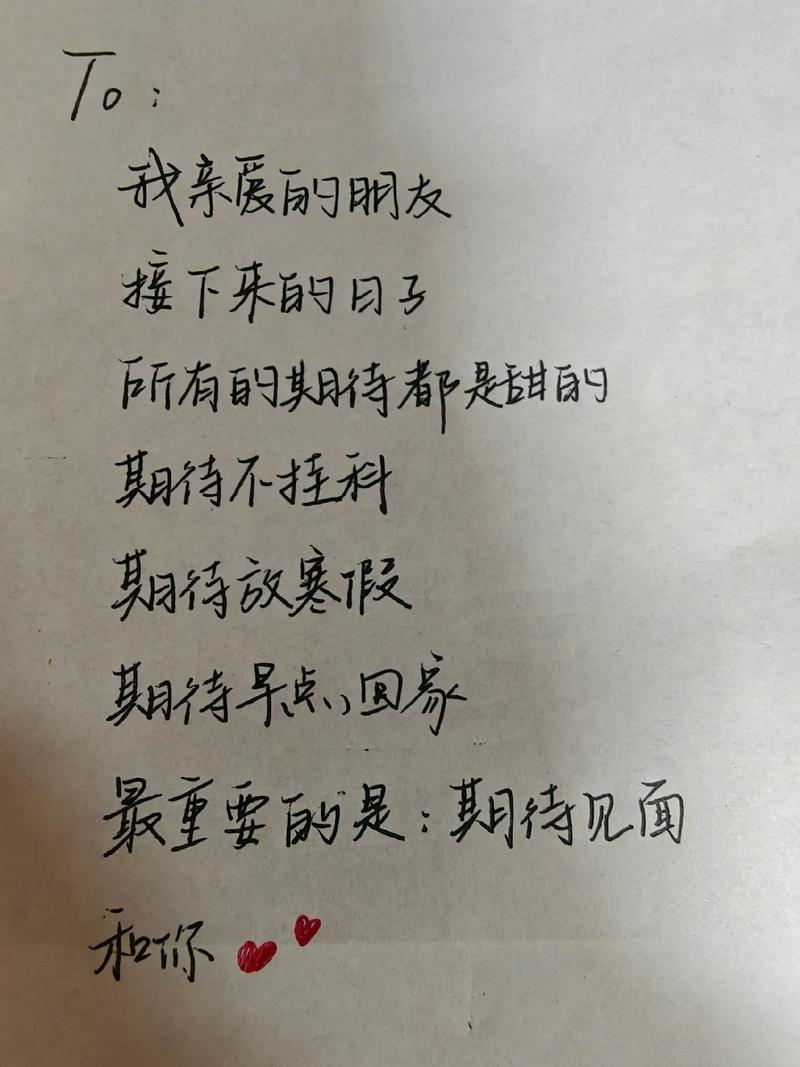 To:
我亲爱的朋友
接下来的日子
所有的期待都是甜的
期待不挂科
期待放寒假
期待早点回家
最重要的是:期待见面
和你